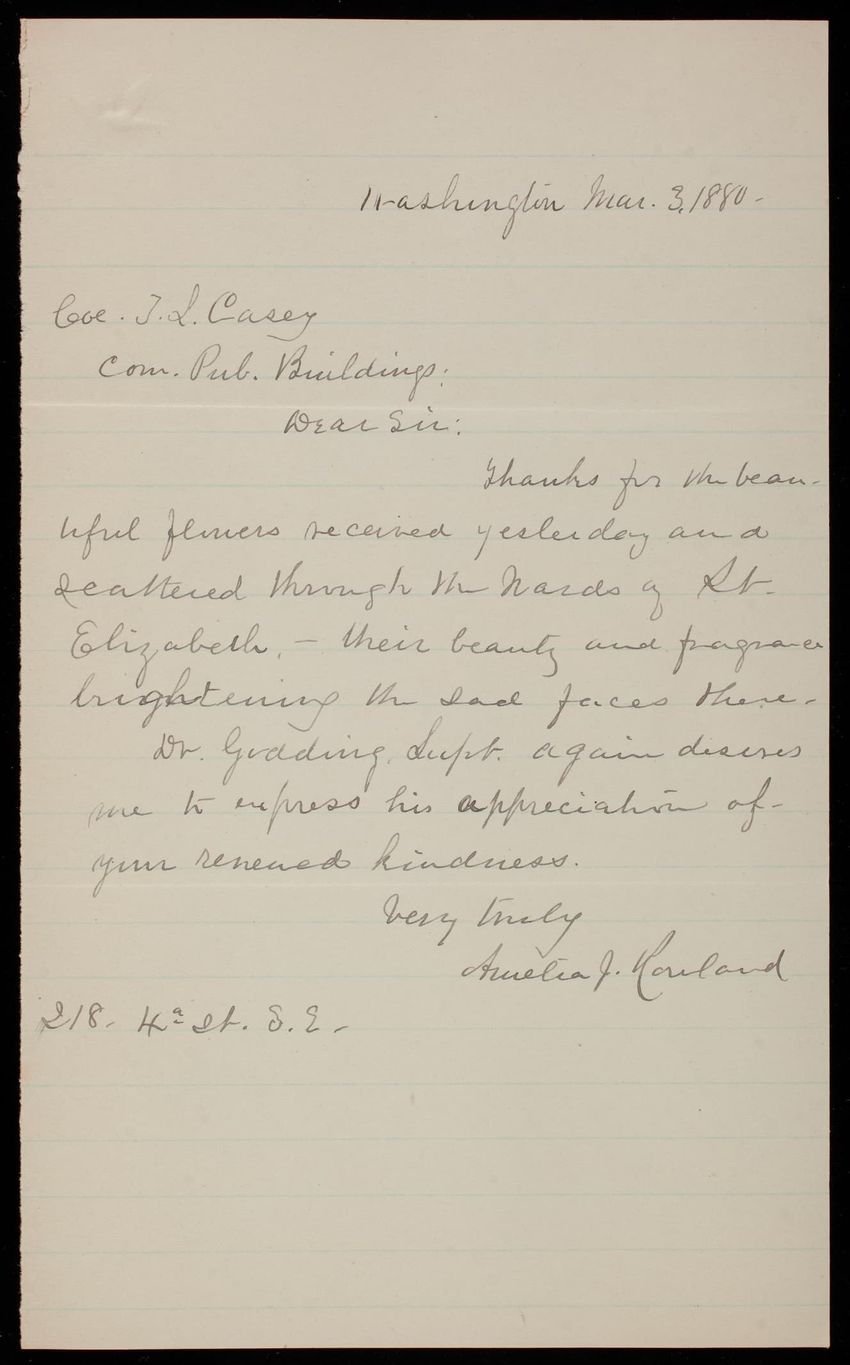 Washington Mar. 3, 1880-
Col. T. L. Casey
Com. Pub. Buildings:
Dear Sir:
Thanks for the beau-
tiful flowers received yesterday and
scattered through the Wards of St.
Elizabeth, - their beauty and fragrance
brightening the sad faces there.
Dr. Godding, Supt. again desires
me to express his appreciation of
your renewed kindness.
Very truly
Amelia J. Rowland
218- 4th St. S. E. -